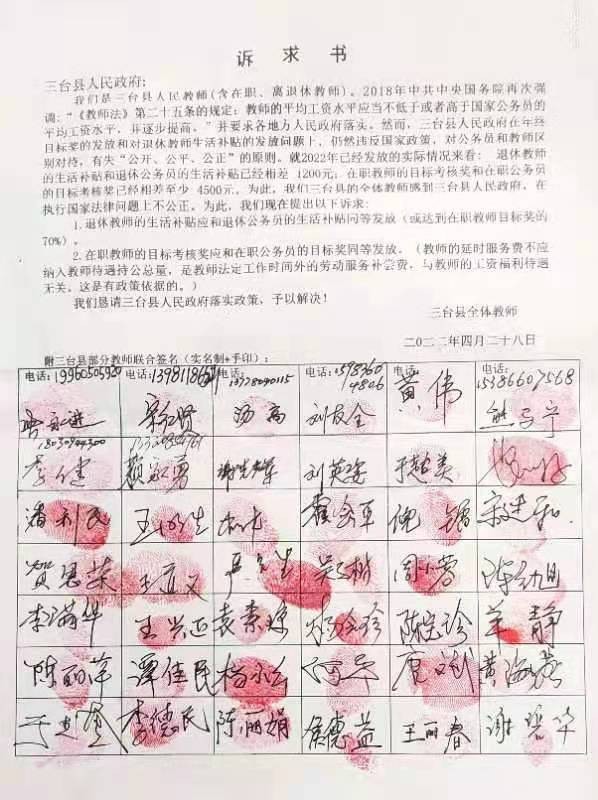 诉求书
三台县人民政府:
我们是三台县人民教师(含在职、离退休教师)。2018年中共中央国务院再次强
调:“《教师法》第二十五条的规定:教师的平均工资水平应当不低于或者高于国家公务员的
平均工资水平,并逐步提高。”并要求各地方人民政府落实。然而,三台县人民政府在年终
目标奖的发放和对退休教师生活补贴的发放问题上,仍然违反国家政策,对公务员和教师区
别对待,有失“公开、公平、公正”的原则。就2022年已经发放的实际情况来看: 退休教师
的生活补贴和退休公务员的生活补贴已经相差 1200元;在职教师的目标考核奖和在职公务员
的目标考核奖已经相差至少 4500元,为此,我们三台县的全体教师感到三台县人民政府,在
执行国家法律问题上不公正。为此,我们现在提出以下诉求:
1.退休教师的生活补贴应和退休公务员的生活补贴同等发放(或达到在职教师目标奖的
70%)。
2.在职教师的目标考核奖应和在职公务员的目标奖同等发放。(教师的延时服务费不应
纳入教师待遇持公总量,是教师法定工作时间外的劳动服务补尝费,与教师的工资福利待遇
无关。这是有政策依据的。)
我们恳请三台县人民政府落实政策,予以解决!
三台县全体教师
二〇二二年四月二十八日
附三台县部分教师联合签名(实名制+手印):
电话: 电话: 电话: 电话: 电话: 电话:15386607568
黄伟
李健 刘英姿
潘利民
贺思荣 王直义 周小蓉
李满华 王兴正 袁素琼 杨俊珍 陈定珍 羊静
陈丽萍 谭佳民 杨永红 何平 唐文斌 黄海蓉
李德民 陈丽娟 侯德益 王丽春 谢碧华